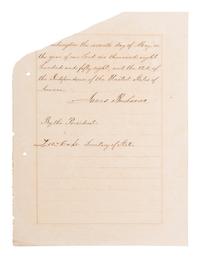 the seventh day of May, in
the year of our Lord one thousand eight
hundred and fifty eight, and the
of
the Independence of the United States of
America.
James Buchanan
By the President:
Lewis Cass Secretary of State.